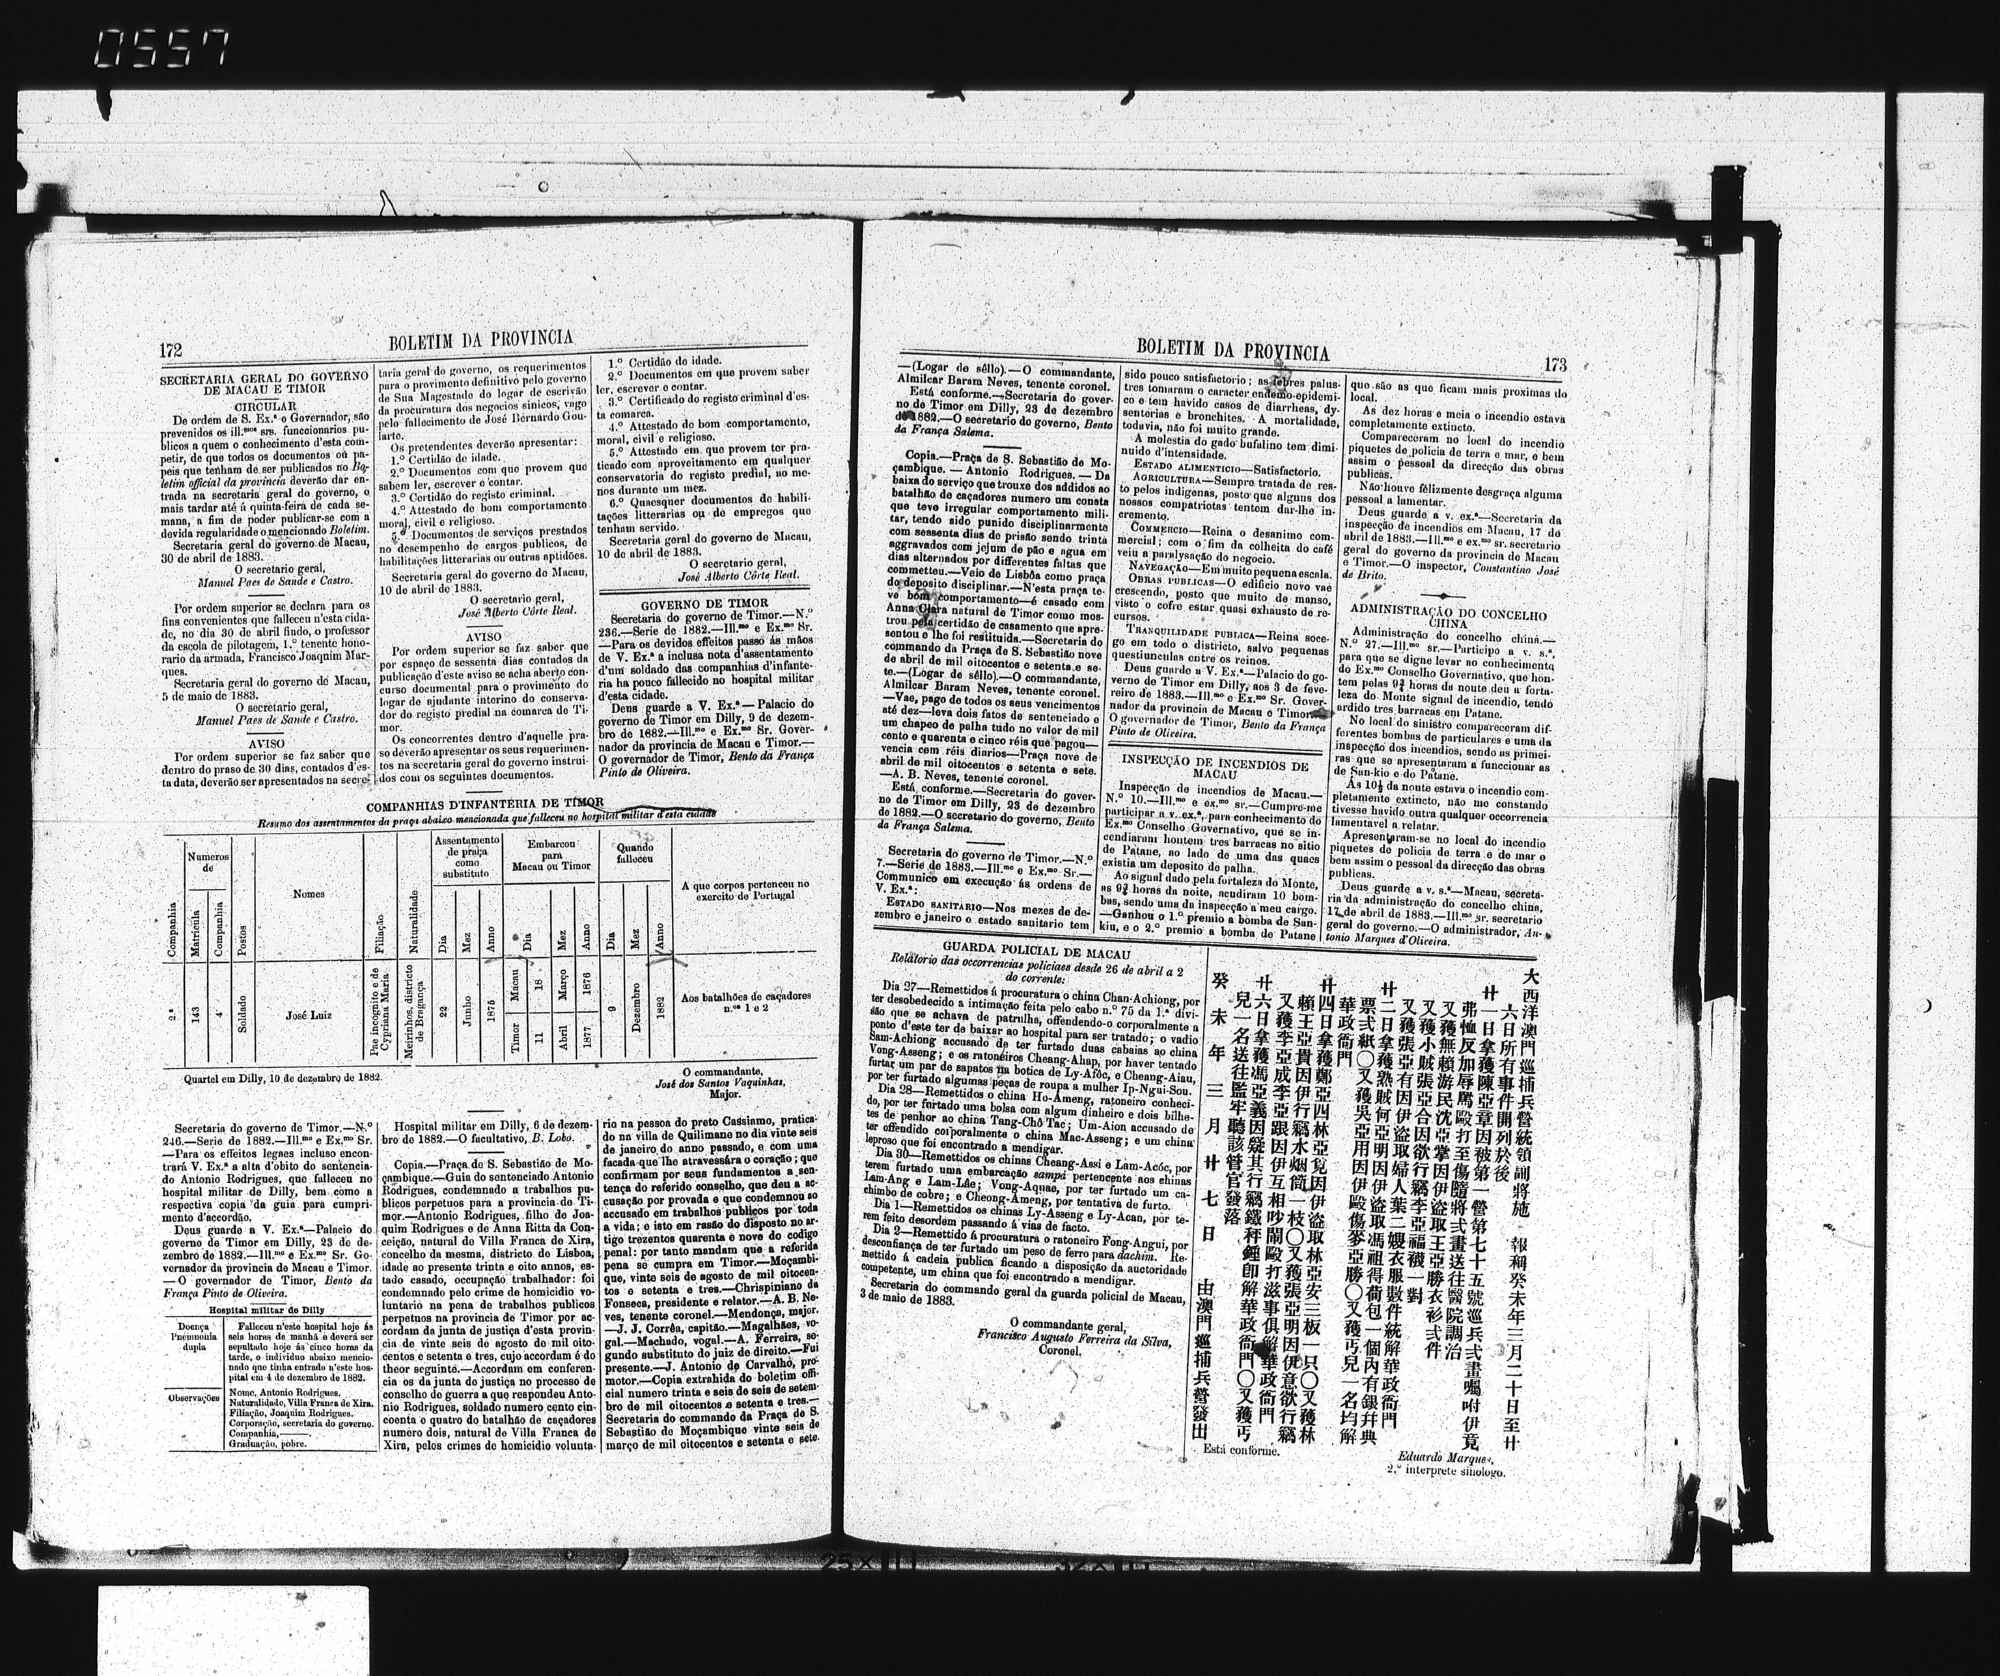 0557
172
BOLETIM DA PROVINCIA
SECRETARIA GERAL DO GOVERNO
DE MACAU E TIMOR
CIRCULAR
De ordem de S. Ex.ª o Governador, são
prevenidos os ill.mos srs. funccionarios pu-
blicos a quem o conhecimento d'esta com-
petir, de que todos os documentos ou pa-
peis que tenham de ser publicados no Bo-
letim official da provincia deverão dar en-
trada na secretaria geral do governo, o
mais tardar até á quinta-feira de cada se-
mana, a fim de poder publicar-se com a
devida regularidade o mencionado Boletim.
Secretaria geral do governo de Macau,
30 de abril de 1883.
O secretario geral,
Manuel Paes de Sande e Castro.
Por ordem superior se declara para os
fins convenientes que falleceu n'esta cida-
de, no dia 30 de abril findo, o professor
da escola de pilotagem, 1.º tenente hono-
rario da armada, Francisco Joaquim Mar-
ques.
Secretaria geral do governo de Macau,
5 de maio de 1883.
O secretario geral,
Manuel Paes de Sande e Castro.
AVISO
Por ordem superior se faz saber que
dentro do praso de 30 dias, contados d'es-
ta data, deverão ser apresentados na secre-
taria geral do governo, os requerimentos
para o provimento definitivo pelo governo
de Sua Magestade do logar de escrivão
da procuratura dos negocios sinicos, vago
pelo fallecimento de José Bernardo Gou-
larte.
Os pretendentes deverão apresentar:
1.º Certidão de idade.
2.º Documentos com que provem que
sabem ler, escrever e contar.
3.º Certidão do registo criminal.
4.º Attestado de bom comportamento
moral, civil e religioso.
5.º Documentos de serviços prestados
no desempenho de cargos publicos, de
habilitações litterarias ou outras aptidões.
Secretaria geral do governo de Macau,
10 de abril de 1883.
O secretario geral,
José Alberto Côrte Real.
AVISO
Por ordem superior se faz saber que
por espaço de sessenta dias contados da
publicação d'este aviso se acha aberto con-
curso documental para o provimento do
logar de ajudante interino do conserva-
dor do registo predial na comarca de Ti-
mor.
Os concorrentes dentro d'aquelle pra-
so deverão apresentar os seus requerimen-
tos na secretaria geral do governo instrui-
dos com os seguintes documentos.
1.º Certidão de idade.
2.º Documentos em que provem saber
ler, escrever e contar.
3.º Certificado do registo criminal d'es-
ta comarca.
4.º Attestado de bom comportamento,
moral, civil e religioso.
5.º Attestado em que provem ter pra-
ticado com aproveitamento em qualquer
conservatoria do registo predial, ao me-
nos durante um mez.
6.º Quaesquer documentos de habili-
tações litterarias ou de empregos que
tenham servido.
Secretaria geral do governo de Macau,
10 de abril de 1883.
O secretario geral,
José Alberto Côrte Real.
GOVERNO DE TIMOR
Secretaria do governo de Timor.—N.º
236.—Serie de 1882.—Ill.mo e Ex.mo Sr.
—Para os devidos effeitos passo ás mãos
de V. Ex.ª a inclusa nota d'assentamento
d'um soldado das companhias d'infante-
ria ha pouco fallecido no hospital militar
d'esta cidade.
Deus guarde a V. Ex.ª—Palacio do
governo de Timor em Dilly, 9 de dezem-
bro de 1882.—Ill.mo e Ex.mo Sr. Gover-
nador da provincia de Macau e Timor.—
O governador de Timor, Bento da França
Pinto de Oliveira.
COMPANHIAS D'INFANTERIA DE TIMOR
Resumo dos assentamentos da praça abaixo mencionada que falleceu no hospital militar d'esta cidade
Companhia
Numeros de
Matricula
Companhia
Postos
Nomes
Filiação
Naturalidade
Assentamento de praça como substituto
Dia
Mez
Anno
Embarcou para Macau ou Timor
Dia
Mez
Anno
Quando falleceu
Dia
Mez
Anno
A que corpos pertenceu no exercito de Portugal
2.ª
143
4
Soldado
José Luiz
Pae incognito e de Cypriana Maria
Meirinhos, districto de Bragança
22
Junho
1875
Macau 18 Março 1876
Timor 11 Abril 1877
9
Dezembro
1882
Aos batalhões de caçadores n.os 1 e 2
Quartel em Dilly, 10 de dezembro de 1882.
O commandante,
José dos Santos Vaquinhas,
Major.
Secretaria do governo de Timor.—N.º
246.—Serie de 1882.—Ill.mo e Ex.mo Sr.
—Para os effeitos legaes incluso encon-
trará V. Ex.ª a alta d'obito do sentencia-
do Antonio Rodrigues, que falleceu no
hospital militar de Dilly, bem como a
respectiva copia da guia para cumpri-
mento d'accordão.
Deus guarde a V. Ex.ª—Palacio do
governo de Timor em Dilly, 23 de de-
zembro de 1882.—Ill.mo e Ex.mo Sr. Go-
vernador da provincia de Macau e Timor.
—O governador de Timor, Bento da
França Pinto de Oliveira.
Hospital militar de Dilly
Doença
Pneumonia
dupla
Falleceu n'este hospital hoje ás
seis horas de manhã e deverá ser
sepultado hoje ás cinco horas da
tarde, o individuo abaixo mencio-
nado que tinha entrado n'este hos-
pital em 4 de dezembro de 1882.
Observações
Nome, Antonio Rodrigues.
Naturalidade, Villa Franca de Xira.
Filiação, Joaquim Rodrigues.
Corporação, secretaria do governo.
Companhia,———.
Graduação, pobre.
Hospital militar em Dilly, 6 de dezem-
bro de 1882.—O facultativo, B. Lobo.
Copia.—Praça de S. Sebastião de Mo-
çambique.—Guia do sentenciado Antonio
Rodrigues, condemnado a trabalhos pu-
blicos perpetuos para a provincia de Ti-
mor.—Antonio Rodrigues, filho de Joa-
quim Rodrigues e de Anna Ritta da Con-
ceição, natural de Villa Franca de Xira,
concelho da mesma, districto de Lisboa,
idade ao presente trinta e oito annos, es-
tado casado, occupação trabalhador: foi
condemnado pelo crime de homicidio vo-
luntario na pena de trabalhos publicos
perpetuos na provincia de Timor por ac-
cordam da junta de justiça d'esta provin-
cia de vinte seis de agosto de mil oito-
centos e setenta e tres, cujo accordam é do
theor seguinte.—Accordam em conferen-
cia os da junta de justiça no processo de
conselho de guerra a que respondeu Anto-
nio Rodrigues, soldado numero cento cin-
coenta e quatro do batalhão de caçadores
numero dois, natural de Villa Franca de
Xira, pelos crimes de homicidio volunta-
rio na pessoa do preto Cassiamo, pratica-
do na villa de Quilimane no dia vinte seis
de janeiro do anno passado, e com uma
facada que lhe atravessára o coração; que
confirmam por seus fundamentos a sen-
tença do referido conselho, que deu a ac-
cusação por provada e que condemnou ao
accusado em trabalhos publicos por toda
a vida; e isto em rasão do disposto no ar-
tigo trezentos quarenta e nove do codigo
penal: por tanto mandam que a referida
pena se cumpra em Timor.—Moçambi-
que, vinte seis de agosto de mil oitocen-
tos e setenta e tres.—Chrispiniano da
Fonseca, presidente e relator.—A. B. Ne-
ves, tenente coronel.—Mendonça, major.
—J. J. Corrêa, capitão.—Magalhães, vo-
gal.—Machado, vogal.—A. Ferreira, se-
gundo substituto do juiz de direito.—Fui
presente.—J. Antonio de Carvalho, pro-
motor.—Copia extrahida do boletim offi-
cial numero trinta e seis de seis de setem-
bro de mil oitocentos e setenta e tres.—
Secretaria do commando da Praça de S.
Sebastião de Moçambique vinte seis de
março de mil oitocentos e setenta e sete.
BOLETIM DA PROVINCIA
173
—(Logar de sêllo).—O commandante,
Almilcar Baram Neves, tenente coronel.
Está conforme.—Secretaria do gover-
no de Timor em Dilly, 23 de dezembro
de 1882.—O secretario do governo, Bento
da França Salema.
Copia.—Praça de S. Sebastião de Mo-
çambique.—Antonio Rodrigues.—Da
baixa do serviço que trouxe dos addidos ao
batalhão de caçadores numero um consta
que teve irregular comportamento mili-
tar, tendo sido punido disciplinarmente
com sessenta dias de prisão sendo trinta
aggravados com jejum de pão e agua em
dias alternados por differentes faltas que
commetteu.—Veio de Lisbôa como praça
do deposito disciplinar.—N'esta praça te-
ve bom comportamento—é casado com
Anna Clara natural de Timor como mos-
trou pela certidão de casamento que apre-
sentou e lhe foi restituida.—Secretaria do
commando da Praça de S. Sebastião nove
de abril de mil oitocentos e setenta e se-
te.—(Logar de sêllo).—O commandante,
Almilcar Baram Neves, tenente coronel.
—Vae, pago de todos os seus vencimentos
até dez—leva dois fatos de sentenciado e
um chapeo de palha tudo no valor de mil
cento e quarenta e cinco réis que pagou—
vencia cem réis diarios—Praça nove de
abril de mil oitocentos e setenta e sete.
—A. B. Neves, tenente coronel.
Está conforme.—Secretaria do gover-
no de Timor em Dilly, 23 de dezembro
de 1882.—O secretario do governo, Bento
da França Salema.
Secretaria do governo de Timor.—N.º
7.—Serie de 1883.—Ill.mo e Ex.mo Sr.—
Communico em execução ás ordens de
V. Ex.ª:
ESTADO SANITARIO—Nos mezes de de-
zembro e janeiro o estado sanitario tem
sido pouco satisfactorio; as febres palus-
tres tomaram o caracter endemo-epidemi-
co e tem havido casos de diarrheas, dy-
senterias e bronchites. A mortalidade,
todavia, não foi muito grande.
A molestia do gado bufalino tem dimi-
nuido d'intensidade.
ESTADO ALIMENTICIO—Satisfactorio.
AGRICULTURA—Sempre tratada de res-
to pelos indigenas, posto que alguns dos
nossos compatriotas tentem dar-lhe in-
cremento.
COMMERCIO—Reina o desanimo com-
mercial; com o fim da colheita do café
veiu a paralysação do negocio.
NAVEGAÇÃO—Em muito pequena escala.
OBRAS PUBLICAS—O edificio novo vae
crescendo, posto que muito de manso,
visto o cofre estar quasi exhausto de re-
cursos.
TRANQUILIDADE PUBLICA—Reina soce-
go em todo o districto, salvo pequenas
questiunculas entre os reinos.
Deus guarde a V. Ex.ª—Palacio do go-
verno de Timor em Dilly, aos 3 de feve-
reiro de 1883.—Ill.mo e Ex.mo Sr. Gover-
nador da provincia de Macau e Timor.—
O governador de Timor, Bento da França
Pinto de Oliveira.
INSPECÇÃO DE INCENDIOS DE
MACAU
Inspecção de incendios de Macau.—
N.º 10.—Ill.mo e ex.mo sr.—Cumpre-me
participar a v. ex.ª, para conhecimento do
Ex.mo Conselho Governativo, que se in-
cendiaram hontem tres barracas no sitio
de Patane, ao lado de uma das quaes
existia um deposito de palha.
Ao signal dado pela fortaleza do Monte,
as 9¾ horas da noite, acudiram 10 bom-
bas, sendo uma da inspecção a meu cargo.
—Ganhou o 1.º premio a bomba de San-
kiu, e o 2.º premio a bomba de Patane
que são as que ficam mais proximas do
local.
As dez horas e meia o incendio estava
completamente extincto.
Compareceram no local do incendio
piquetes de policia de terra e mar, e bem
assim o pessoal da direcção das obras
publicas.
Não houve felizmente desgraça alguma
pessoal a lamentar.
Deus guarde a v. ex.ª—Secretaria da
inspecção de incendios em Macau, 17 de
abril de 1883.—Ill.mo e ex.mo sr. secretario
geral do governo da provincia de Macau
e Timor.—O inspector, Constantino José
de Brito.
ADMINISTRAÇÃO DO CONCELHO
CHINA
Administração do concelho china.—
N.º 27.—Ill.mo sr.—Participo a v. s.ª,
para que se digne levar ao conhecimento
do Ex.mo Conselho Governativo, que hon-
tem pelas 9¾ horas da noute deu a forta-
leza do Monte signal de incendio, tendo
ardido tres barracas em Patane.
No local do sinistro compareceram dif-
ferentes bombas de particulares e uma da
inspecção dos incendios, sendo as primei-
ras que se apresentaram a funccionar as
de San-kio e do Patane.
Ás 10½ da noute estava o incendio com-
pletamente extincto, não me constando
tivesse havido outra qualquer occorrencia
lamentavel a relatar.
Apresentaram-se no local do incendio
piquetes de policia de terra e de mar e
bem assim o pessoal da direcção das obras
publicas.
Deus guarde a v. s.ª—Macau, secreta-
ria da administração do concelho china,
17 de abril de 1883.—Ill.mo sr. secretario
geral do governo.—O administrador, An-
tonio Marques d'Oliveira.
GUARDA POLICIAL DE MACAU
Relatorio das occorrencias policiaes desde 26 de abril a 2
do corrente:
Dia 27—Remettidos á procuratura o china Chan-Achiong, por
ter desobedecido a intimação feita pelo cabo n.º 75 da 1.ª divi-
são que se achava de patrulha, offendendo-o corporalmente a
ponto d'este ter de baixar ao hospital para ser tratado; o vadio
Sam-Achiong accusado de ter furtado duas cabaias ao china
Vong-Asseng; e os ratoneiros Cheang-Ahap, por haver tentado
furtar um par de sapatos na botica de Ly-Afôc, e Cheang-Aiau,
por ter furtado algumas peças de roupa a mulher Ip-Ngui-Sou.
Dia 28—Remettidos o china Ho-Ameng, ratoneiro conheci-
do, por ter furtado uma bolsa com algum dinheiro e dois bilhe-
tes de penhor ao china Tang-Chô Tac; Um-Aion accusado de
ter offendido corporalmente o china Mac-Asseng; e um china
leproso que foi encontrado a mendigar.
Dia 30—Remettidos os chinas Cheang-Assi e Lam-Acóc, por
terem furtado uma embarcação sampá pertencente aos chinas
Lam-Ang e Lam-Lâe; Vong-Aquae, por ter furtado um ca-
chimbo de cobre; e Cheong-Ameng, por tentativa de furto.
Dia 1—Remettidos os chinas Ly-Asseng e Ly-Acan, por te-
rem feito desordem passando á vias de facto.
Dia 2—Remettido á procuratura o ratoneiro Fong-Angui, por
desconfiança de ter furtado um peso de ferro para dachim. Re-
mettido á cadeia publica ficando a disposição da auctoridade
competente, um china que foi encontrado a mendigar.
Secretaria do commando geral da guarda policial de Macau,
3 de maio de 1883.
O commandante geral,
Francisco Augusto Ferreira da Silva,
Coronel.
大西洋澳門巡捕兵營統領副將施 報稱癸未年三月二十日至廿
六日所有事件開列於後
廿一日拿獲陳亞章因被第一營第七十五號巡兵弍畫囑咐伊竟
弗恤反加辱罵毆打至傷隨將弍畫送往醫院調治
又獲無賴游民沈亞掌因伊盜取王亞勝衣衫弍件
又獲小賊張亞合因欲行竊李亞福襪一對
又獲張亞有因伊盜取婦人葉二嫂衣服數件統解華政衙門
廿二日拿獲熟賊何亞明因伊盜取馮祖得荷包一個內有銀幷典
票弍紙〇又獲吳亞用因伊毆傷麥亞勝〇又獲丐兒一名均解
華政衙門
廿四日拿獲鄭亞四林亞覓因伊盜取林亞安三板一只〇又獲林
賴王亞貴因伊行竊水烟筒一枝〇又獲張亞明因伊意欲行竊
又獲李亞成李亞跟因伊互相吵鬧毆打滋事俱解華政衙門
廿六日拿獲馮亞義因疑其行竊鐵秤錘卽解華政衙門〇又獲丐
兒一名送往監牢聽該管官發落
癸未年三月廿七日 由澳門巡捕兵營發出
Está conforme.
Eduardo Marques,
2.º interprete sinologo.